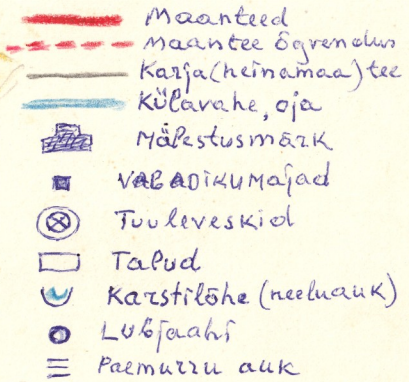 Maanteed
Maantee õgvendus
Karja(heinamaa)tee
Külavahe, oja
Mälestusmärk
VABADIKUMAJAD
Tuuleveskid
Talud
Karstilõhe (neeluauk)
Lubjaahi
Paemurru auk